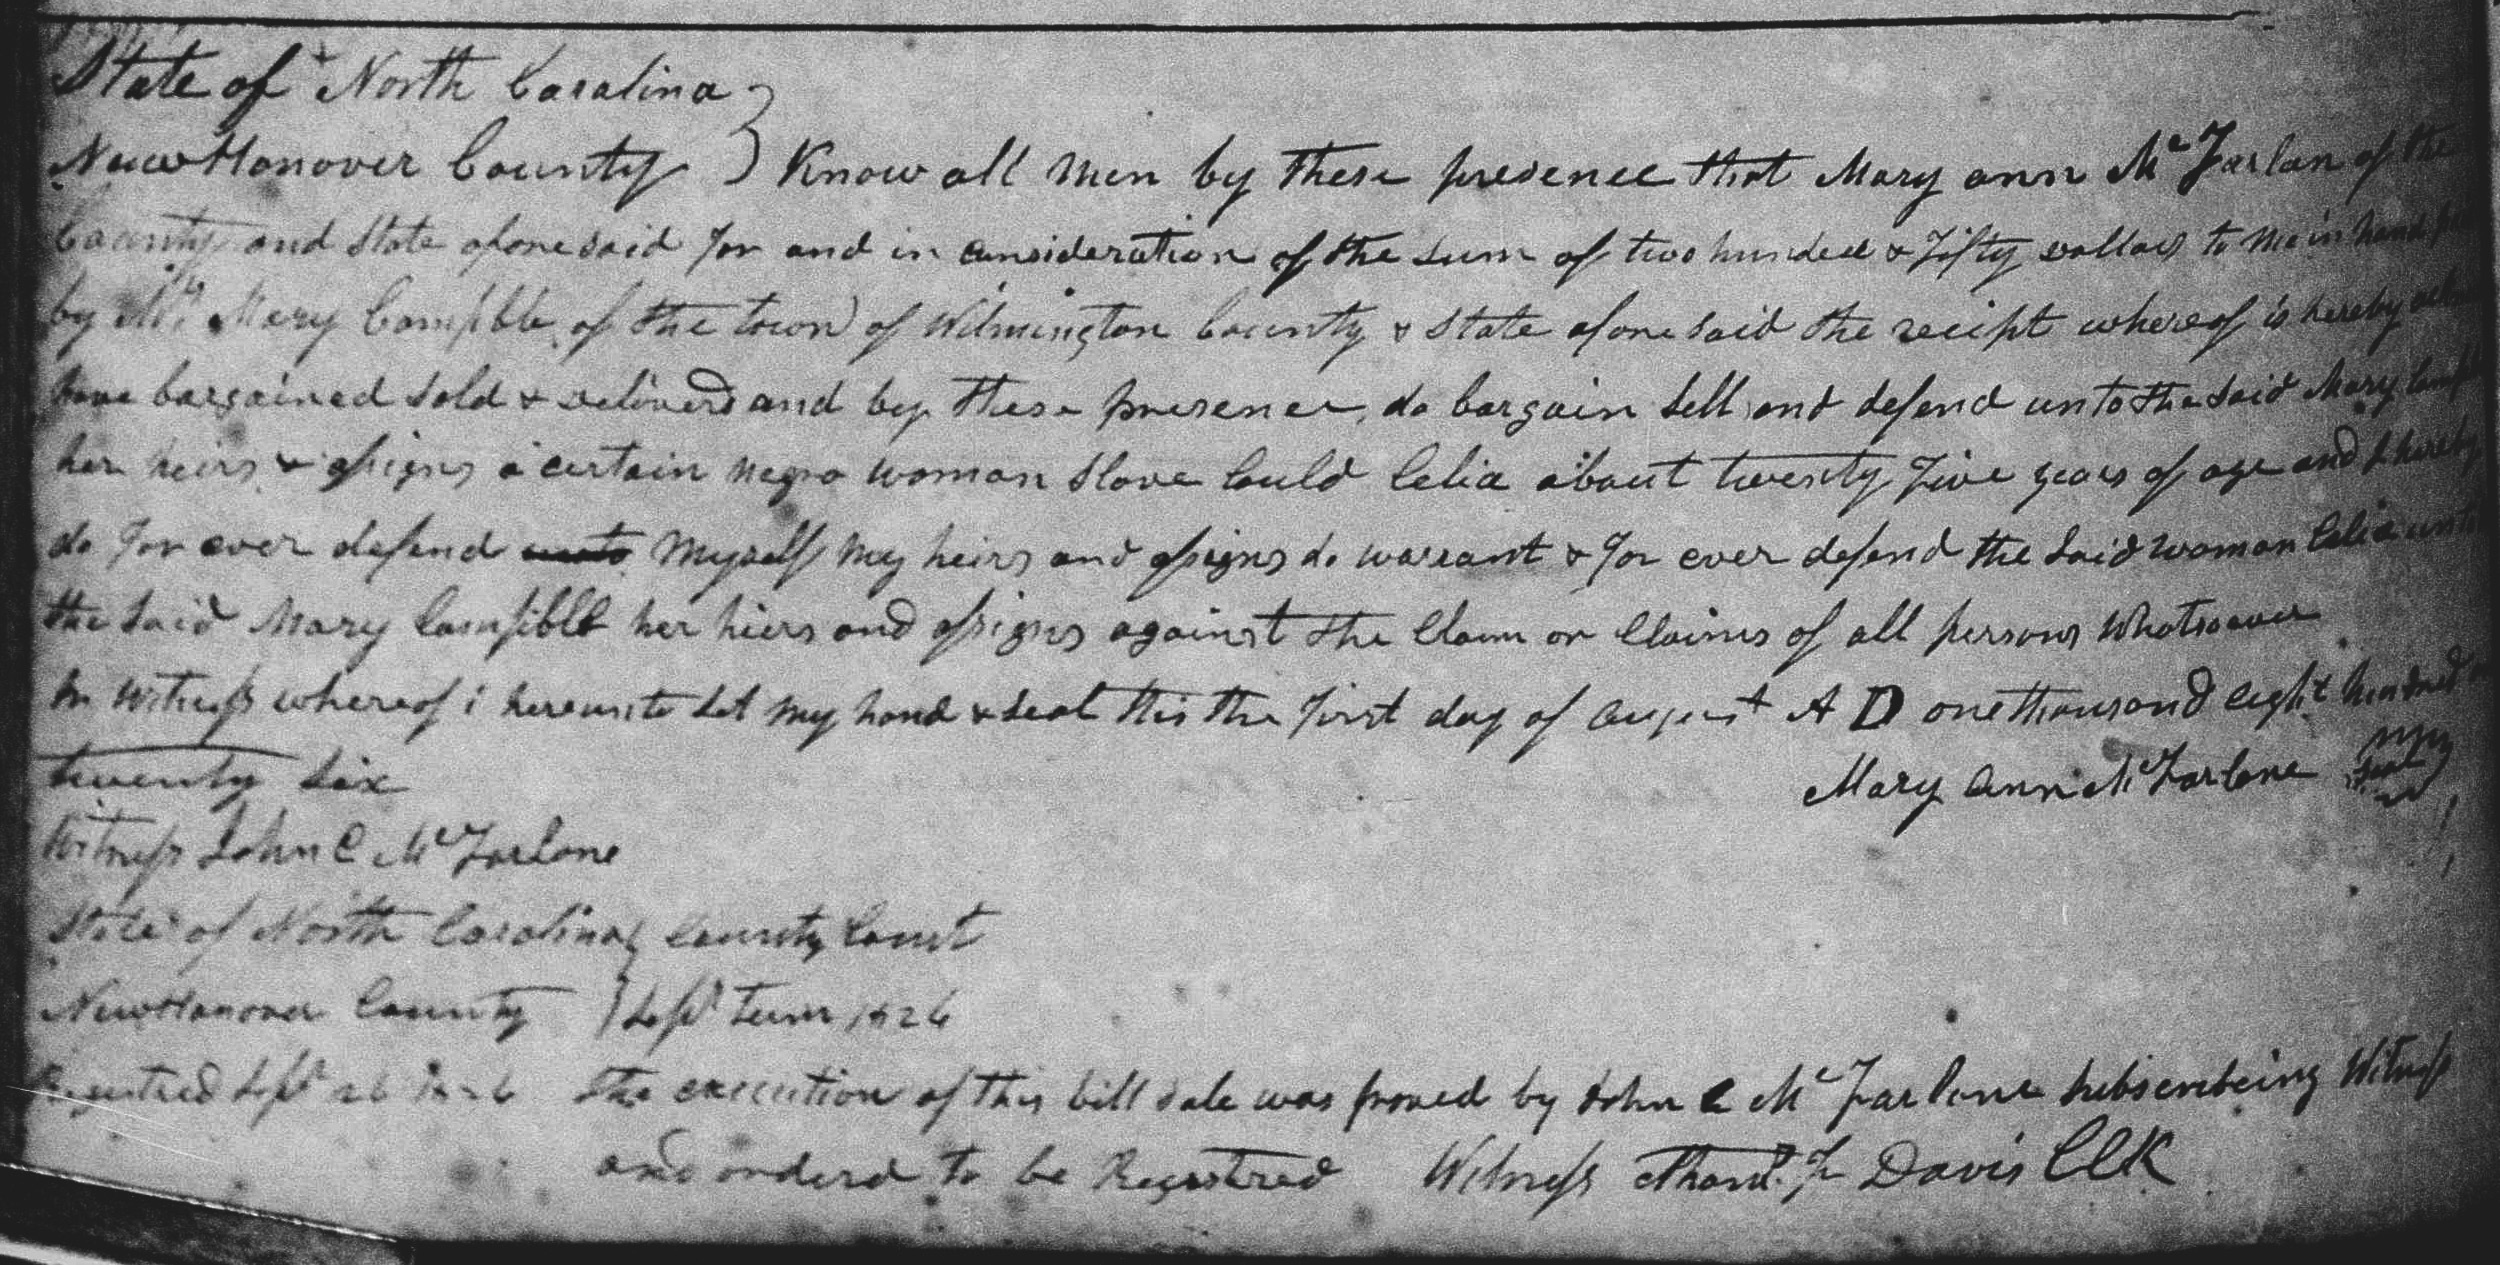 State of North Carolina
New Hanover County } Know all men by these presence that Mary ann McFarlan of the
County and State afore said for and in consideration of the sum of two hundred & Fifty dollars to me in hand
by Mrs Mary Campble of the town of Wilmington County & State afore said the recipt whereof is hereby
have bargained sold & deliverd and by these presence do bargain sell and defend unto the said Mary
her heirs & assigns a certain negro woman slave Could Celia about twenty Five years of age and I hereby
do for ever defend unto myself my heirs and assigns do warrant & for ever defend the said woman Celia unto
the said Mary Campible her hiers and assigns against the Claim or Claims of all persons whatsoever
In witness whereof i hereunto set my hand & seal this the First day of august A D one thousand eight hundred
twenty six Mary Ann McFarlane Seal
Witness John C McFarlane
State of North Carolina } County Court
New Hanover County } Sept Term 1826
Registred Sept 26 1826 The execution of this bill sale was proved by John C McFarlane subscribeing Witness
and orderd to be Registred Witness Thom. F Davis Clk